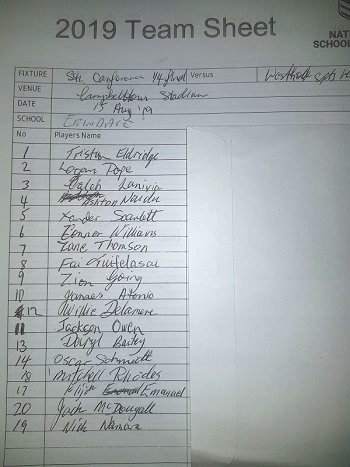 2019 Team Sheet
NAT
SCHOOL
FIXTURE Sth Conference 1/4 final Versus Westfields Spts
VENUE Campbelltown Stadium
DATE 15 Aug '19
SCHOOL ERINDALE
No Players Name
1 Tristan Eldridge
2 Logan Pope
3 Caleb
4 Ashton Naidu
5 Xander Scarlett
6 Connor Williams
7 Zane Thomson
8 Fai
9 Zion Going
10 James Atonio
12 Willie Delamere
11 Jackson Owen
13 Daryl
14 Oscar Schmidt
18 Mitchell Rhodes
17 Elijah Emanuel
20 Jack McDougall
19 Nick